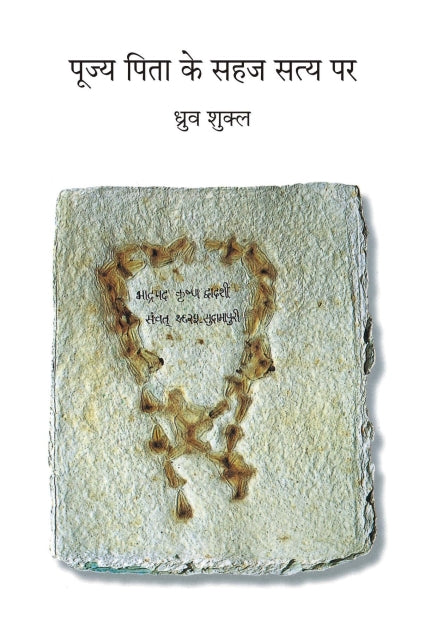 पूज्य पिता के सहज सत्य पर
ध्रुव शुक्ल
भाद्रपद कृष्णा द्वादशी
संवत् १९२५ सुदामापुरी